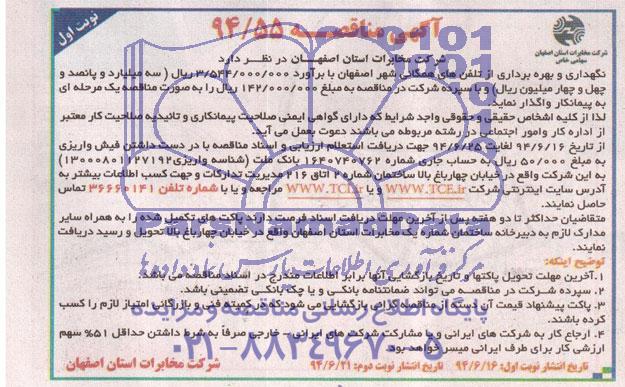 نوبت اول
آگهی مناقصه ۹۴/۵۵
شرکت مخابرات استان اصفهان
سهامی خاص
شرکت مخابرات استان اصفهان در نظر دارد
نگهداری و بهره برداری از تلفن های همگانی شهر اصفهان با برآورد ۳/۵۴۴/۰۰۰/۰۰۰ ریال ( سه میلیارد و پانصد و
چهل و چهار میلیون ریال) و با سپرده شرکت در مناقصه به مبلغ ۱۴۲/۰۰۰/۰۰۰ ریال را به صورت مناقصه یک مرحله ای
به پیمانکار واگذار نماید.
لذا از کلیه اشخاص حقیقی و حقوقی واجد شرایط که دارای گواهی ایمنی صلاحیت پیمانکاری و تائیدیه صلاحیت کار معتبر
از اداره کار وامور اجتماعی در رشته مربوطه می باشند دعوت بعمل می آید.
از تاریخ ۹۴/۶/۱۶ لغایت ۹۴/۶/۲۵ جهت دریافت استعلام ارزیابی و اسناد مناقصه با در دست داشتن فیش واریزی
به مبلغ ۵۰/۰۰۰ ریال به حساب جاری شماره ۱۶۴۰۷۴۰۷۶۲ بانک ملت (شناسه واریزی ۱۳۰۰۰۸۰۱۱۲۷۱۹۲)
به این شرکت واقع در خیابان چهارباغ بالا ساختمان شماره ۲ اتاق ۲۱۶ مدیریت تدارکات و جهت کسب اطلاعات بیشتر به
آدرس سایت اینترنتی شرکت WWW.TCE.ir و یا WWW.TCI.ir مراجعه و یا با شماره تلفن ۳۶۶۶۰۱۴۱ تماس
حاصل نمایند.
متقاضیان حداکثر تا دو هفته پس از آخرین مهلت دریافت اسناد فرصت دارند پاکت های تکمیل شده را به همراه سایر
مدارک لازم به دبیرخانه ساختمان شماره یک مخابرات استان اصفهان واقع در خیابان چهارباغ بالا تحویل و رسید دریافت
نمایند.
توضیح اینکه:
۱. آخرین مهلت تحویل پاکتها و تاریخ بازگشایی آنها برابر اطلاعات مندرج در اسناد مناقصه می باشد.
۲. سپرده شرکت در مناقصه می تواند ضمانتنامه بانکی و یا چک بانکی تضمینی باشد.
۳. پاکت پیشنهاد قیمت آن دسته از مناقصه گران بازگشایی می شود که در کمیته فنی و بازرگانی امتیاز لازم را کسب
کرده باشند.
۴. ارجاع کار به شرکت های ایرانی و یا مشارکت شرکت های ایرانی - خارجی صرفاً به شرط داشتن حداقل ۵۱% سهم
ارزشی کار برای طرف ایرانی میسر خواهد بود.
تاریخ انتشار نوبت اول: ۹۴/۶/۱۶ تاریخ انتشار نوبت دوم: ۹۴/۶/۲۱
شرکت مخابرات استان اصفهان
مرکز فرآوری اطلاعات پارس نماد داده ها
پایگاه اطلاع رسانی مناقصه و مزایده
۰۲۱-۸۸۳۴۹۶۷۰-۵